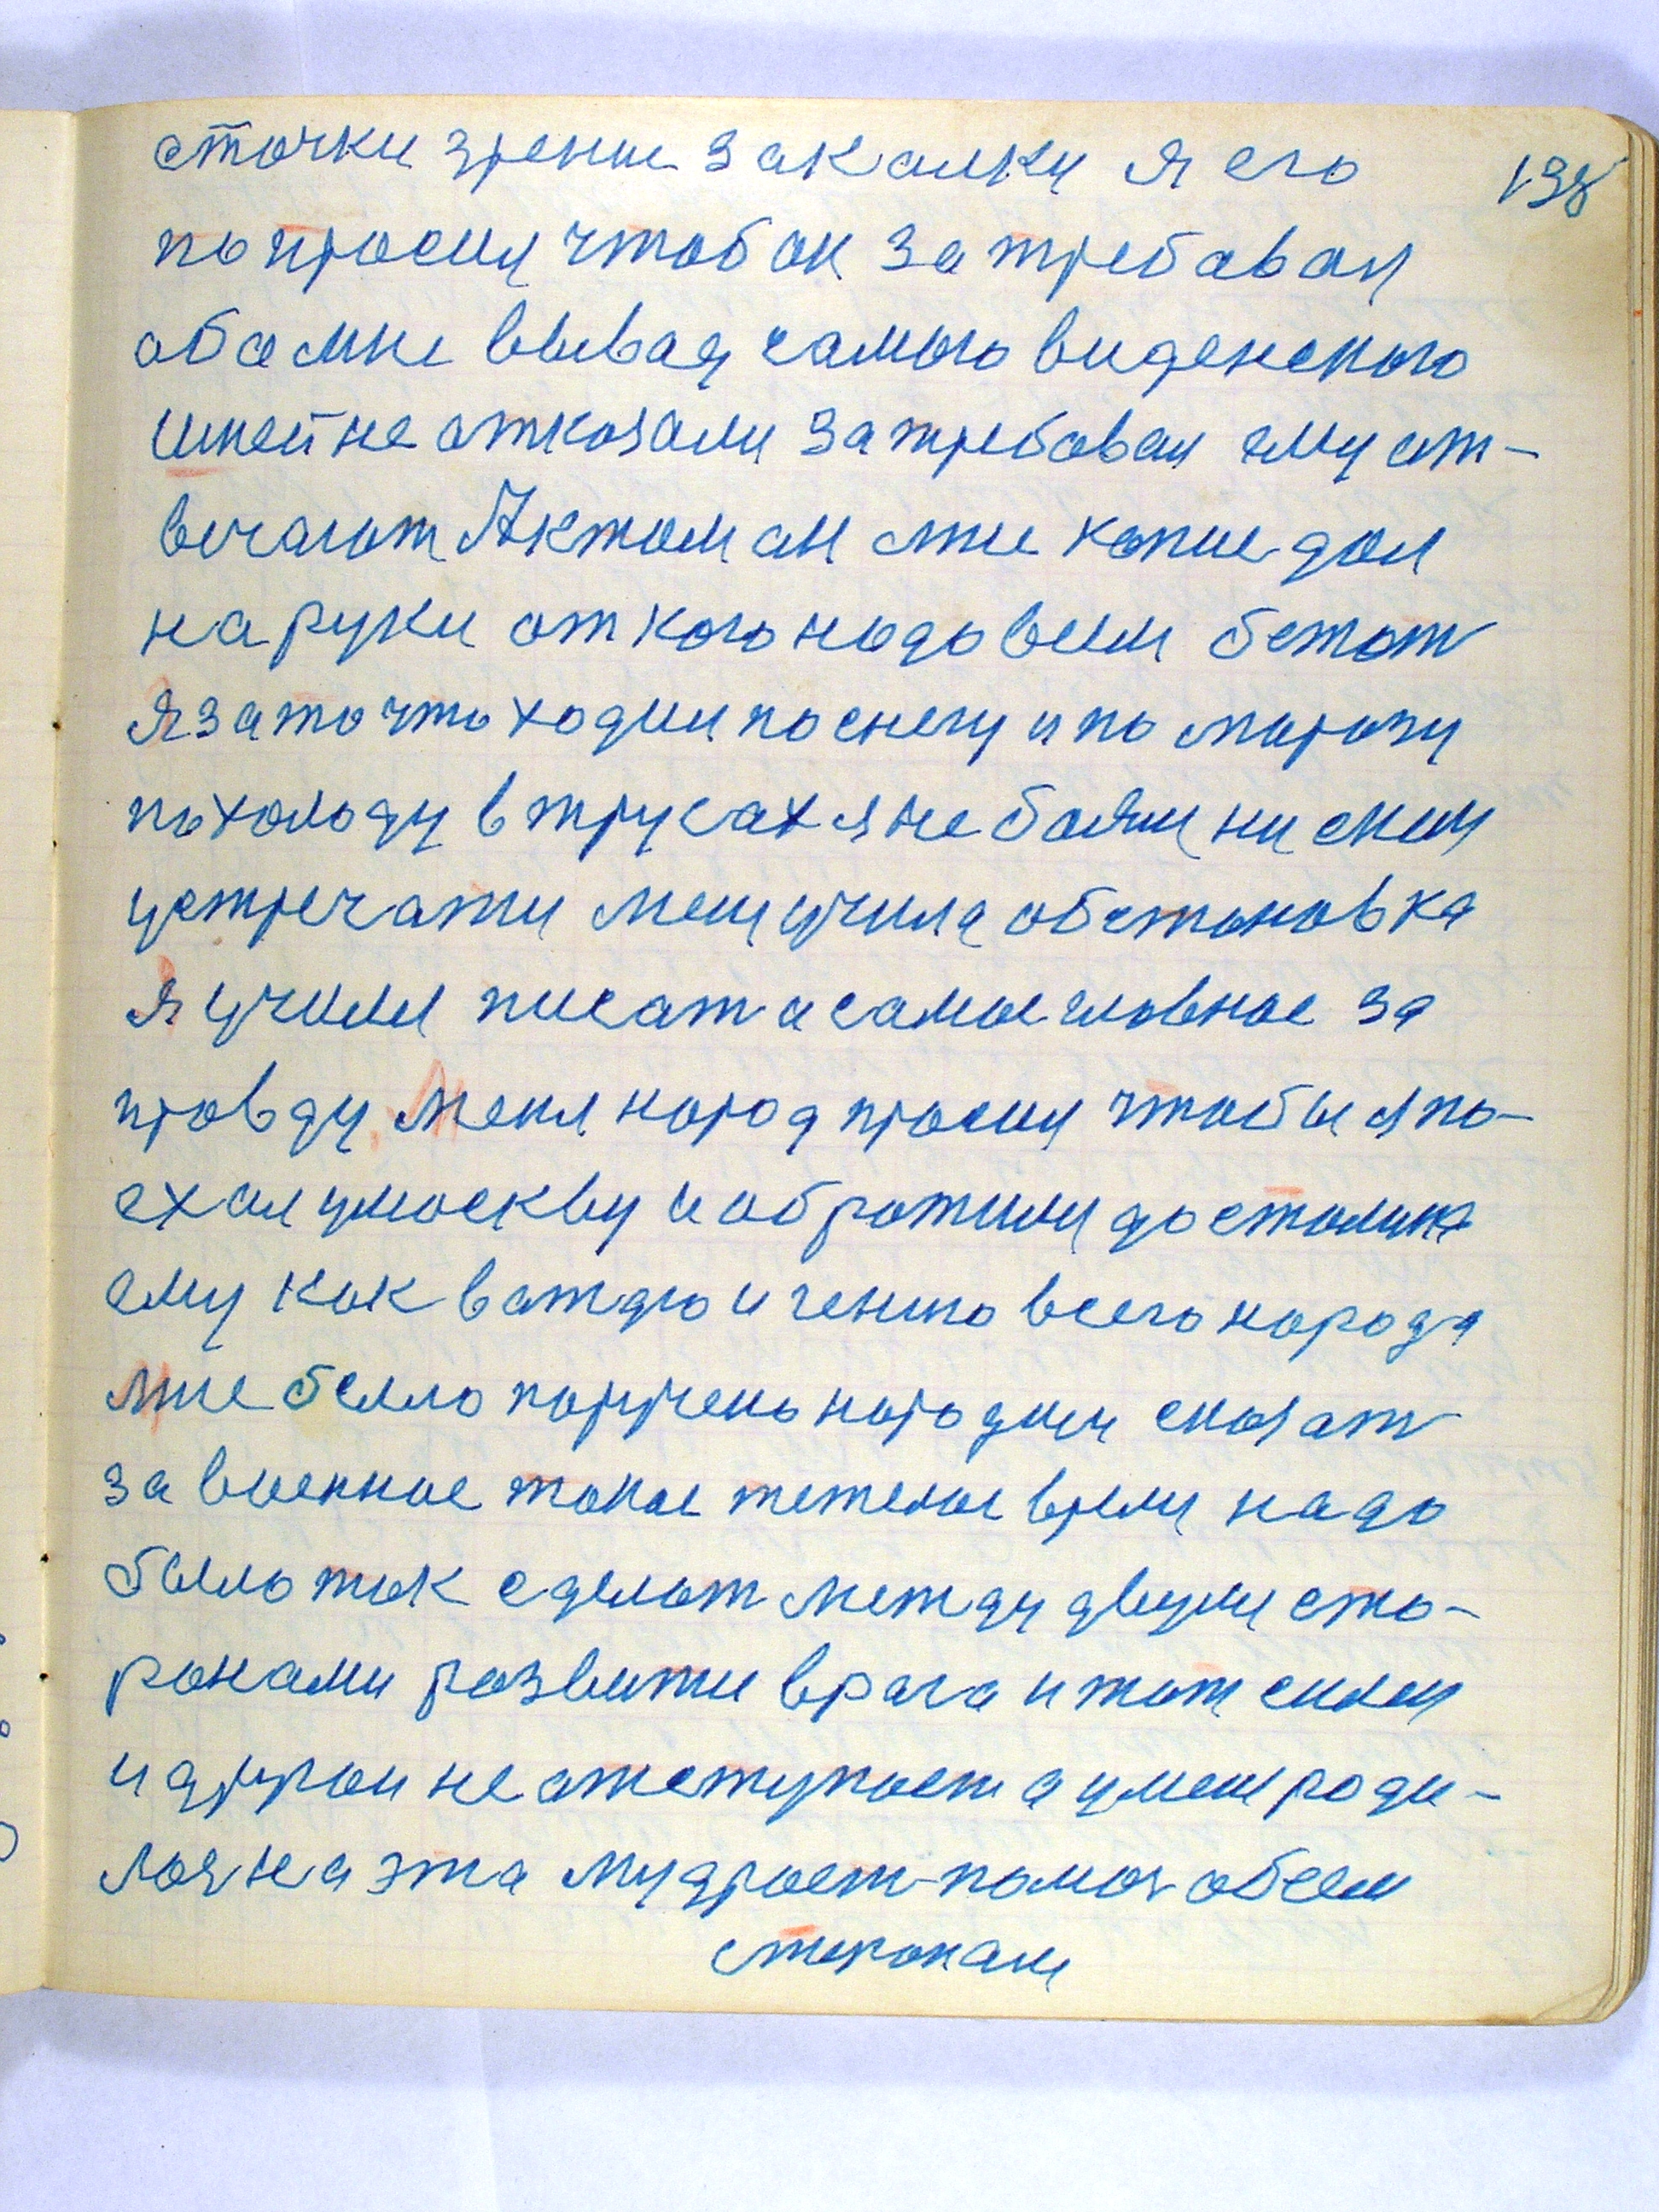 сточки зрение закалки я его
138
попросил чтоб он затребовал
обо мне вывад самого виденского
имей не отказали затребовал ему от-
вечают Актом он мне копие дал
на руки от кого надо всем бежат
я зато что ходил по снегу и по морозу
по холоду в трусах я не боялся ни с ким
устречати меня учила обстановка
я учился писат а самое главное за
правду. Меня народ просил чтобы я по-
ехал у москву и обратился до сталина
ему как важдю и гению всего народа
мне было поручено народом сказат
за военное такое тежелое время надо
было так сделат между двумя сто-
ронами развитие врага и тот силен
и другой не отступает а у меня роди-
лося на это мудрост помоч обеем
сторонам